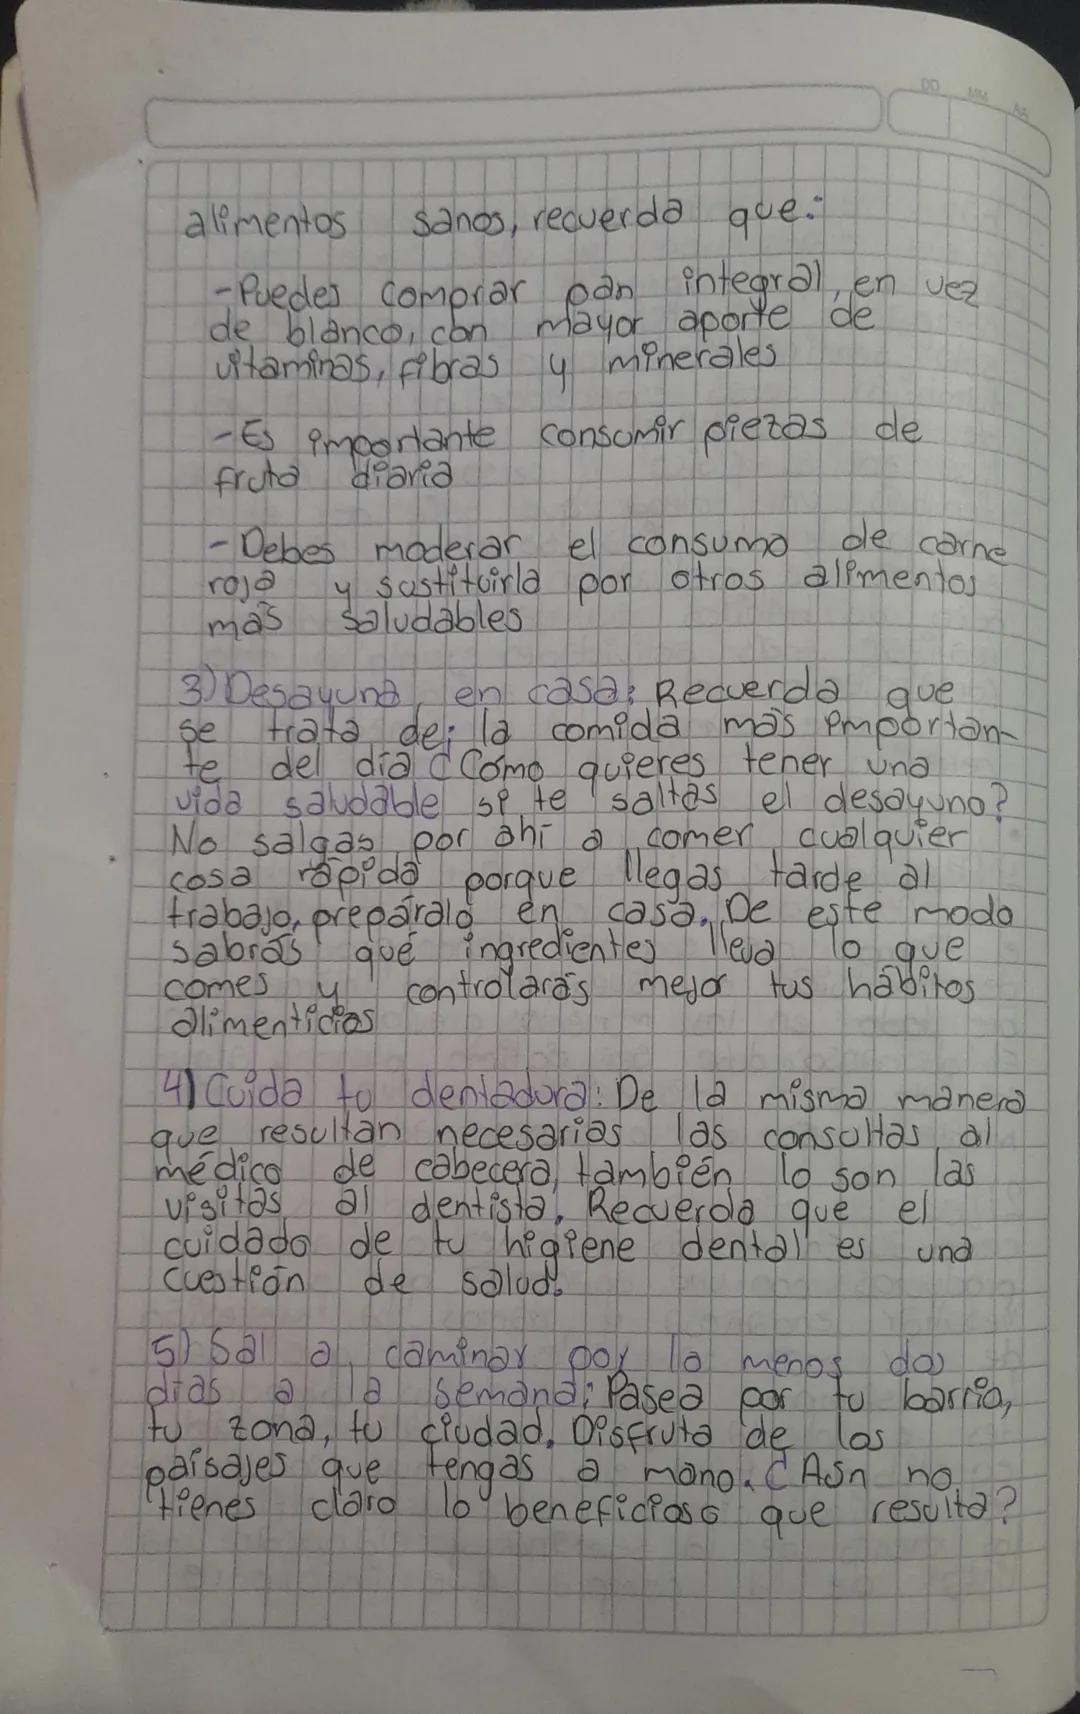 DD MM AA
alimentos sanos, recuerda que:
-Puedes comprar pan integral, en vez
de blanco, con mayor aporte de
vitaminas, fibras y minerales
-Es importante consumir piezas de
fruta diaria
-Debes moderar el consumo de carne
roja y sustituirla por otros alimentos
más saludables
3) Desayuna en casa: Recuerda que
se trata de; la comida más importan-
te del día ¿Cómo quieres tener una
vida saludable si te saltas el desayuno?
No salgas por ahí a comer cualquier
cosa rápida porque llegas tarde al
trabajo, prepáralo en casa. De este modo
sabrás qué ingredientes lleva lo que
comes y controlarás mejor tus hábitos
alimenticios
4) Cuida tu dentadura: De la misma manera
que resultan necesarias las consultas al
médico de cabecera, también lo son las
visitas al dentista. Recuerda que el
cuidado de tu higiene dental es una
cuestión de salud.
5) Sal a caminar por lo menos dos
días a la semana: Pasea por tu barrio,
tu zona, tu ciudad. Disfruta de los
paisajes que tengas a mano. ¿Aún no
tienes claro lo beneficioso que resulta?